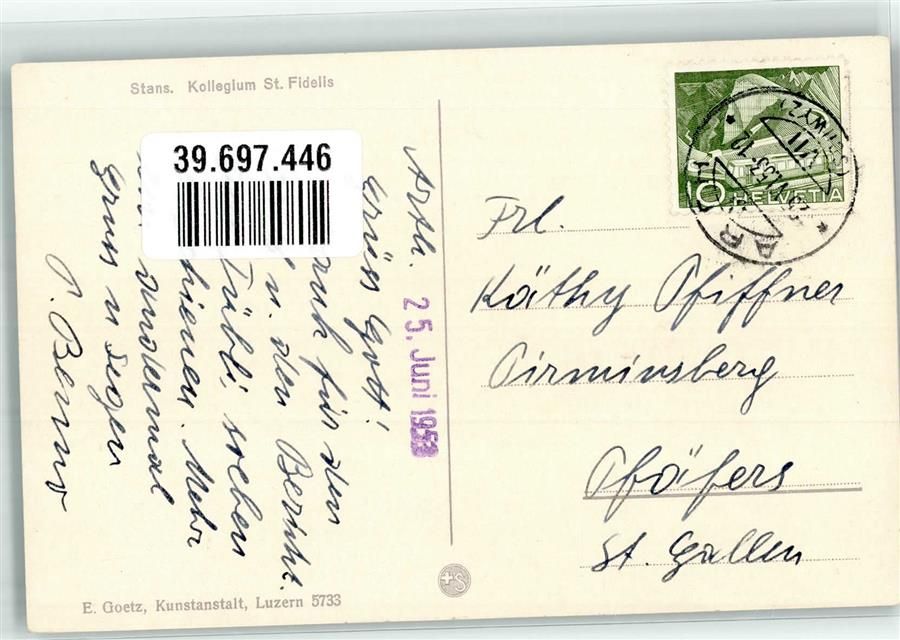 Stans. Kollegium St. Fidelis
39.697.446
Arth. 25. Juni 1953
Grüss Gott!
für den
u. den Bericht.
Tübli soeben
Mehr
ein andermal
Gruss u Segen
P. Benno
10 HELVETIA
(SCHWYZ)
Frl.
Käthy Pfiffner
Pirminsberg
Pfäfers
St. Gallen
E. Goetz, Kunstanstalt, Luzern 5733